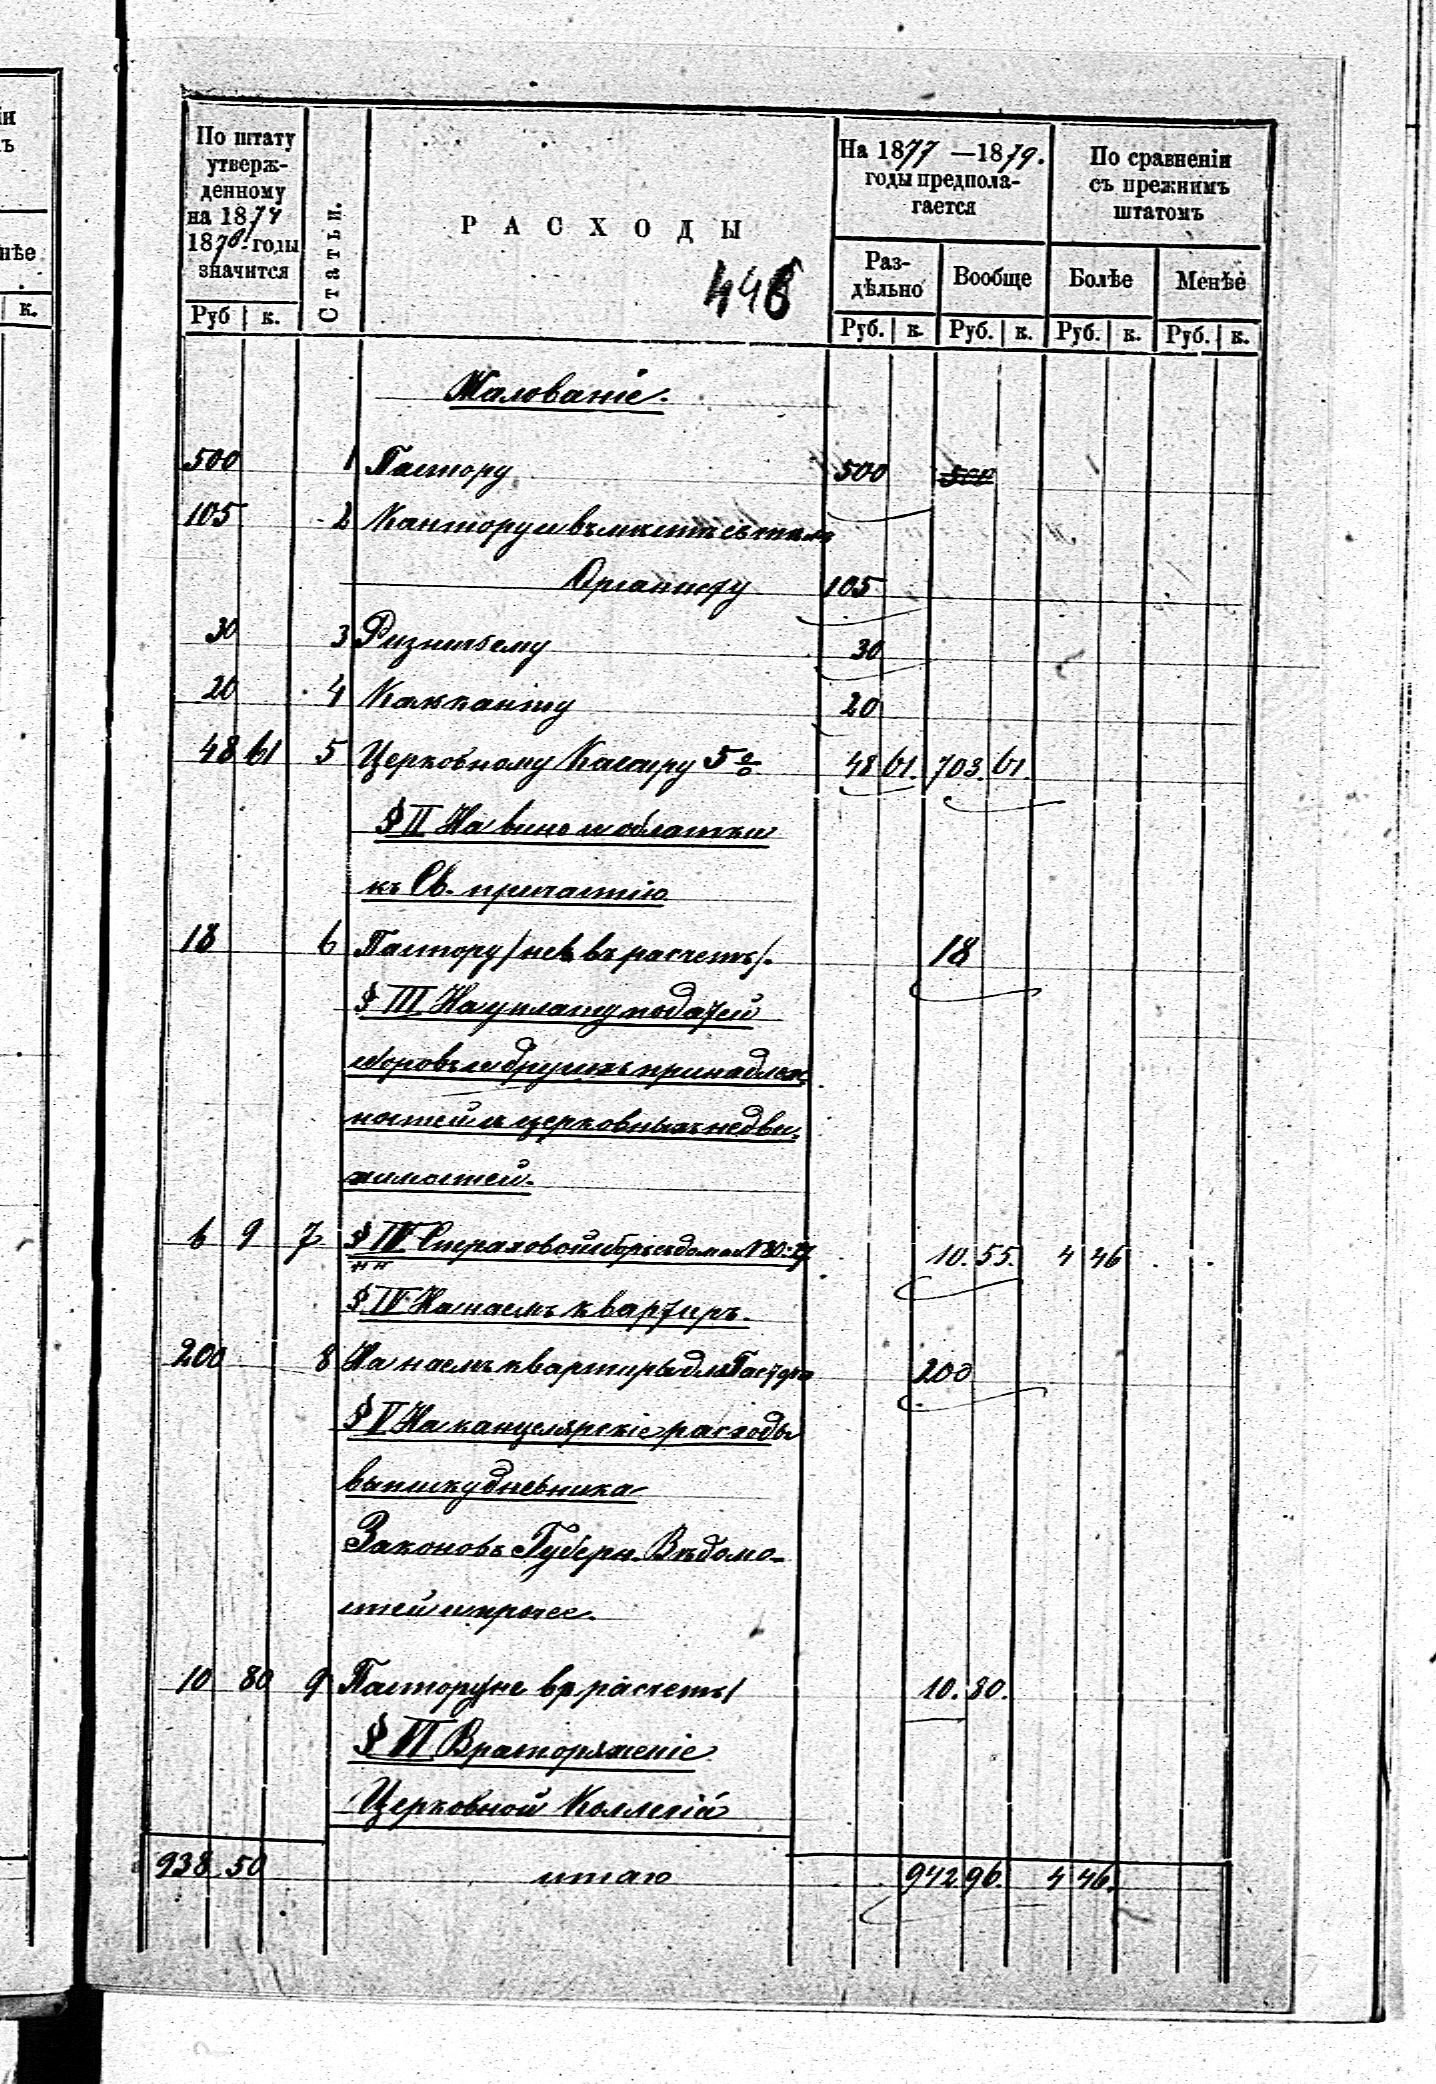 По штату
утверж-
денному
на 1874
1876 годы
значится
Руб к.
Статьи.
РАСХОДЫ
446
На 1877 —1879.
годы предпола-
гается
Раз-
дѣльно
Вообще
По сравненіи
съ прежнимъ
штатомъ
Болѣе
Менѣе
Руб. к. Руб. к. Руб. к. Руб. к.
нѣе
к.
Жалованіе.
500 1 Пастору 500 500
105 2 Кантору и вмѣстѣ съ тѣмъ
Органисту 105
30 3 Ризничему 30
20 4 Калканту 20
48 61 5 Церковному Кассиру 5% 48 61. 703. 61.
§ II На вино и облатки
къ Св. причастію
18 6 Пастору /не въ расчетъ/. 18
§ III На уплату податей
сборовъ и другихъ принадлеж-
ностей съ церковныхъ недви-
жимостей.
6 9 7 § IV Страховой сборъ съ дома 10. 55. 4 46
§ IV На наемъ квартиръ.
200 8 На наемъ квартиры для Пастора 200
§ V На канцелярскіе расходы
выписку дневника
Законовъ Губерн. Вѣдомо-
стей и прочее.
10 80 9 Пастору /не въ расчетъ/ 10. 80.
§ VI В распоряженіе
Церковной Коллегіи
938 50 итого 942 96. 4 46.